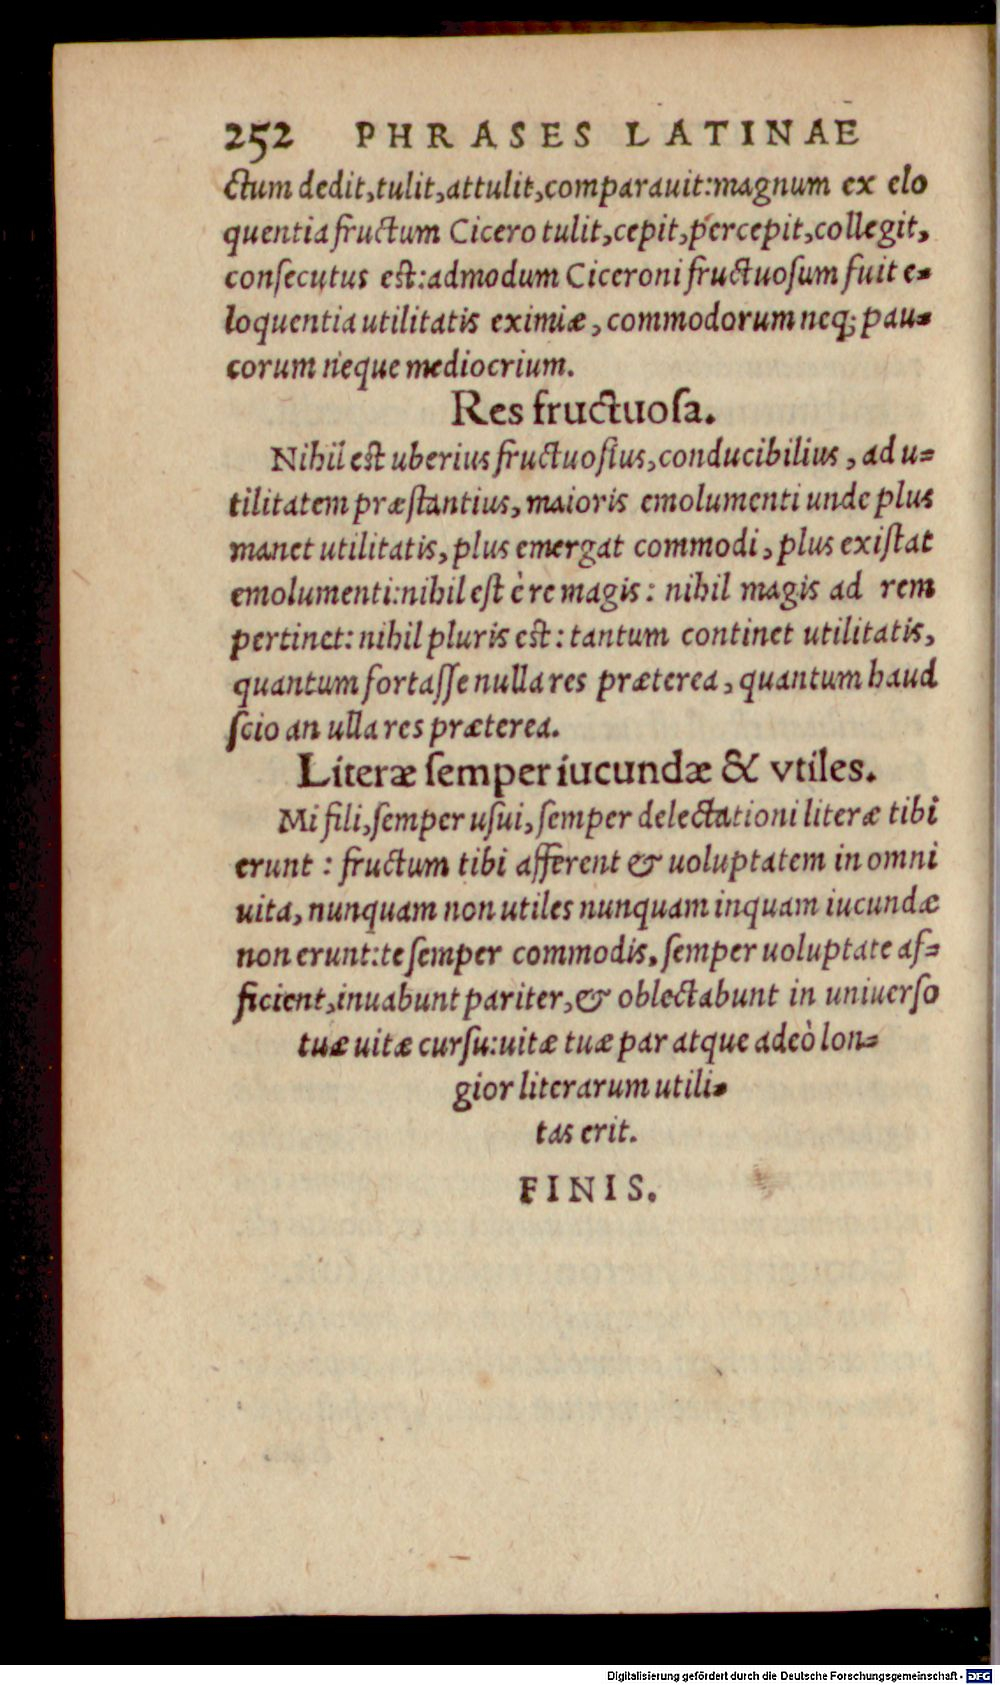 252 PHRASES LATINAE
ctum dedit,tulit,attulit,comparauit:magnum ex elo
quentia fructum Cicero tulit,cepit,percepit,collegit,
conſecutus eſt:admodum Ciceroni fructuoſum fuit e-
loquentia utilitatis eximiæ, commodorum neq; pau-
corum neque mediocrium.
Res fructuoſa.
Nihil eſt uberius fructuoſius,conducibilius, ad u-
tilitatem præſtantius, maioris emolumenti unde plus
manet utilitatis, plus emergat commodi, plus exiſtat
emolumenti:nihil eſt è re magis: nihil magis ad rem
pertinet: nihil pluris eſt: tantum continet utilitatis,
quantum fortaſſe nulla res præterea, quantum haud
ſcio an ulla res præterea.
Literæ ſemper iucundæ & vtiles.
Mi fili,ſemper uſui, ſemper delectationi literæ tibi
erunt : fructum tibi afferent & uoluptatem in omni
uita, nunquam non utiles nunquam inquam iucundæ
non erunt:te ſemper commodis, ſemper uoluptate af-
ficient,inuabunt pariter,& oblectabunt in uniuerſo
tuæ uitæ curſu:uitæ tuæ par atque adeò lon-
gior literarum utili-
tas erit.
FINIS.
Digitalisierung gefördert durch die Deutsche Forschungsgemeinschaft - DFG